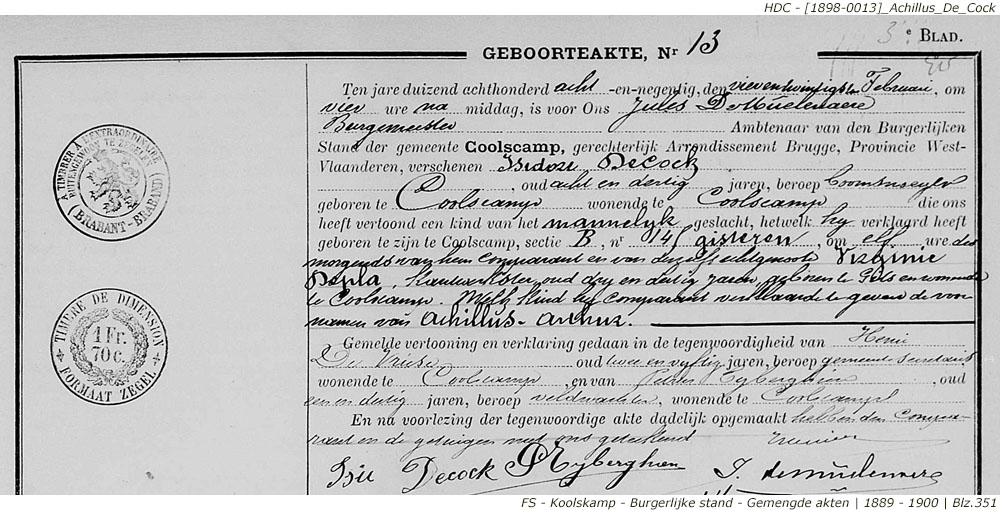 HDC - [1898-0013]_Achillus_De_Cock
3e BLAD.
GEBOORTEAKTE, Nr 13
Ten jare duizend achthonderd acht -en-negentig, den vierentwintigsten Februari, om
vier ure na middag, is voor Ons Jules De Muelenaere
Burgemeester Ambtenaar van den Burgerlijken
Stand der gemeente Coolscamp, gerechterlijk Arrondissement Brugge, Provincie West-
Vlaanderen, verschenen Isidore Decock
, oud acht en dertig jaren, beroep
geboren te Coolscamp wonende te Coolscamp die ons
heeft vertoond een kind van het mannelyk geslacht, hetwelk hy verklaard heeft
geboren te zijn te Coolscamp, sectie B, nr 145 gisteren, om elf ure des
morgends van hem comparant en van dezelfs echtgenoote Virginie
Depla, Kantwerkster, oud dry en dertig jaren, geboren te en wonende
te Coolscamp. Welk kind hy comparant verklaarde te geven de voor-
namen van Achillus-Arthur.
Gemelde vertooning en verklaring gedaan in de tegenwoordigheid van Henri
De Vriese oud twee en vyftig jaren, beroep gemeente secretaris
wonende te Coolscamp, en van Nyberghein, oud
een en dertig jaren, beroep veldwachter, wonende te Coolscamp
En na voorlezing der tegenwoordige akte dadelijk opgemaakt hebben den compa-
rant en de getuigen met ons geteekend
Isi Decock Nyberghein J. deMuelenaere
A TIMBRER A L'EXTRAORDINAIRE
BUITENGEWOON TE ZEGELEN
(BRABANT-BRABAND)
TIMBRE DE DIMENSION
1 Fr.
70 c.
FORMAAT ZEGEL
FS - Koolskamp - Burgerlijke stand - Gemengde akten | 1889 - 1900 | Blz.351